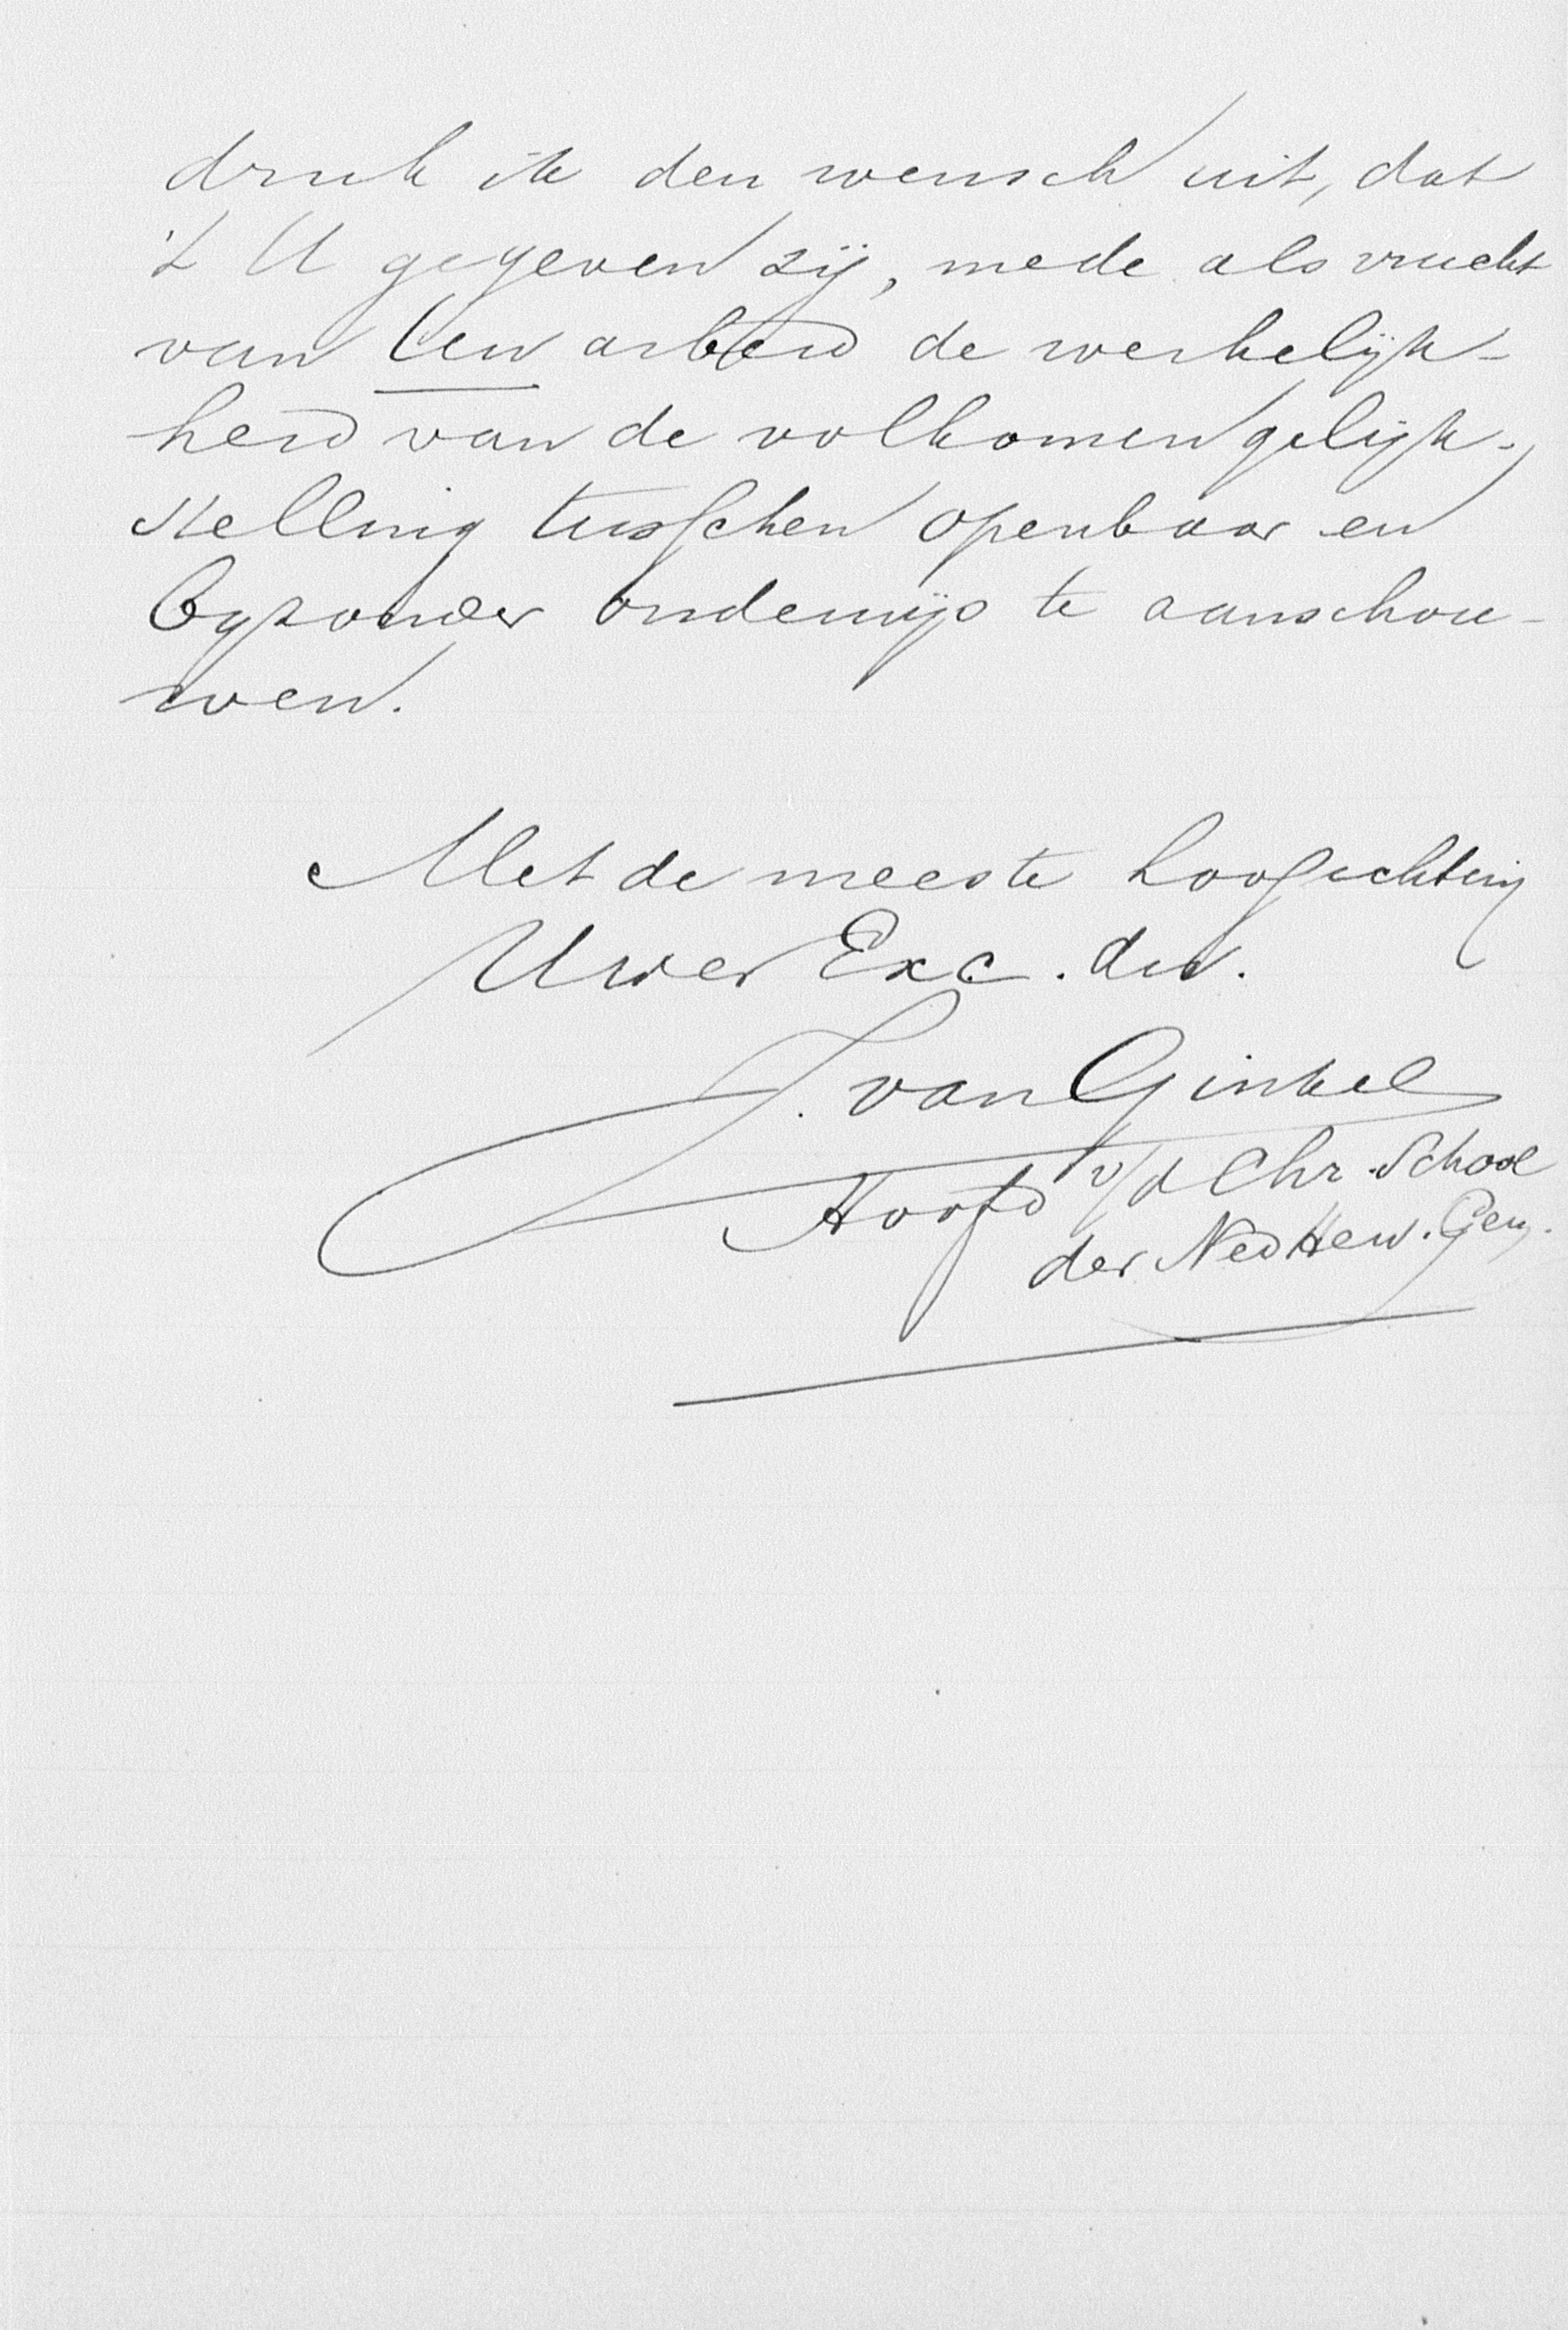 druk ik den wensch uit, dat
't U gegeven zij, mede als vrucht
van Uw arbeid de werkelijk-
heid van de volkomen gelijk-
stelling tusschen openbaar en
Byzonder onderwijs te aanschou-
wen.
Met de meeste hoogachting
Uwer Exc. dw.
J. van Ginkel
Hoofd v/d Chr. School
der Ned Herv. Gem.